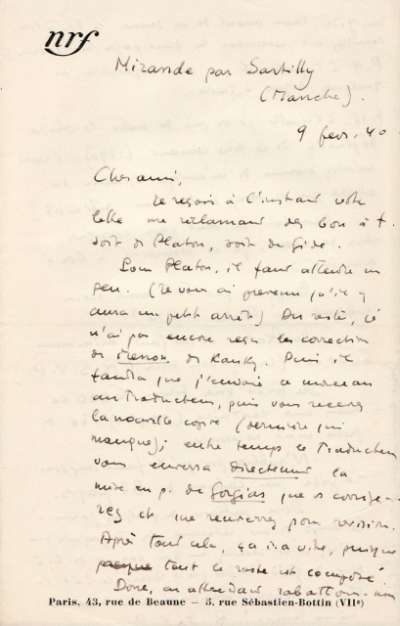 nrf
Mirande par Sartilly
(Manche).
9 févr. 40
Cher ami,
Je reçois à l'instant votre
lettre me réclamant des bon à t.
soit de Platon, soit de Gide.
Pour Platon, il faut attendre un
peu. (Je vous ai prévenu qu'il y
aura un petit arrêt.) Du reste, je
n'ai pas encore reçu les corrections
de de Puis il
faudra que j'envoie ce morceau
au traducteur, puis vous recevrez
la nouvelle copie (dernière qui
manque); entre temps le traducteur
vous enverra directement la
mise en p. de Gorgias que v. corrige-
rez et me renverrez pour révision.
Après tout cela, ça ira vite, puisque
tout le reste est composé.
Donc, en attendant rabattons-nous
Paris, 43, rue de Beaune — 5, rue Sébastien-Bottin (VIIe)